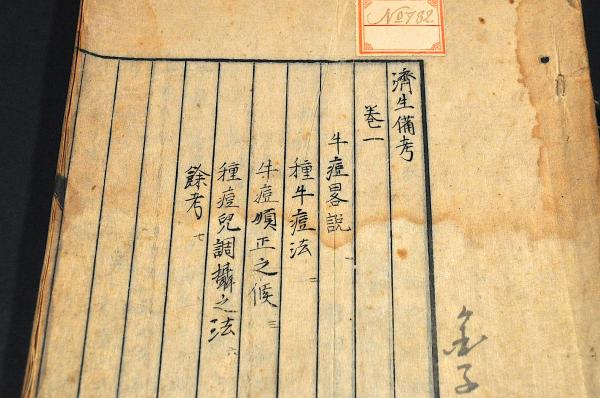 No 782
濟生備考
卷一
牛痘畧説 一
種牛痘法 二
牛痘順正之候 三
種痘兒調攝之法 六
餘考 七
金子